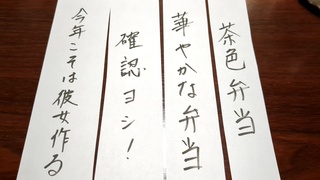 茶色弁当
華やかな弁当
確認ヨシ！
今年こそは彼女作る